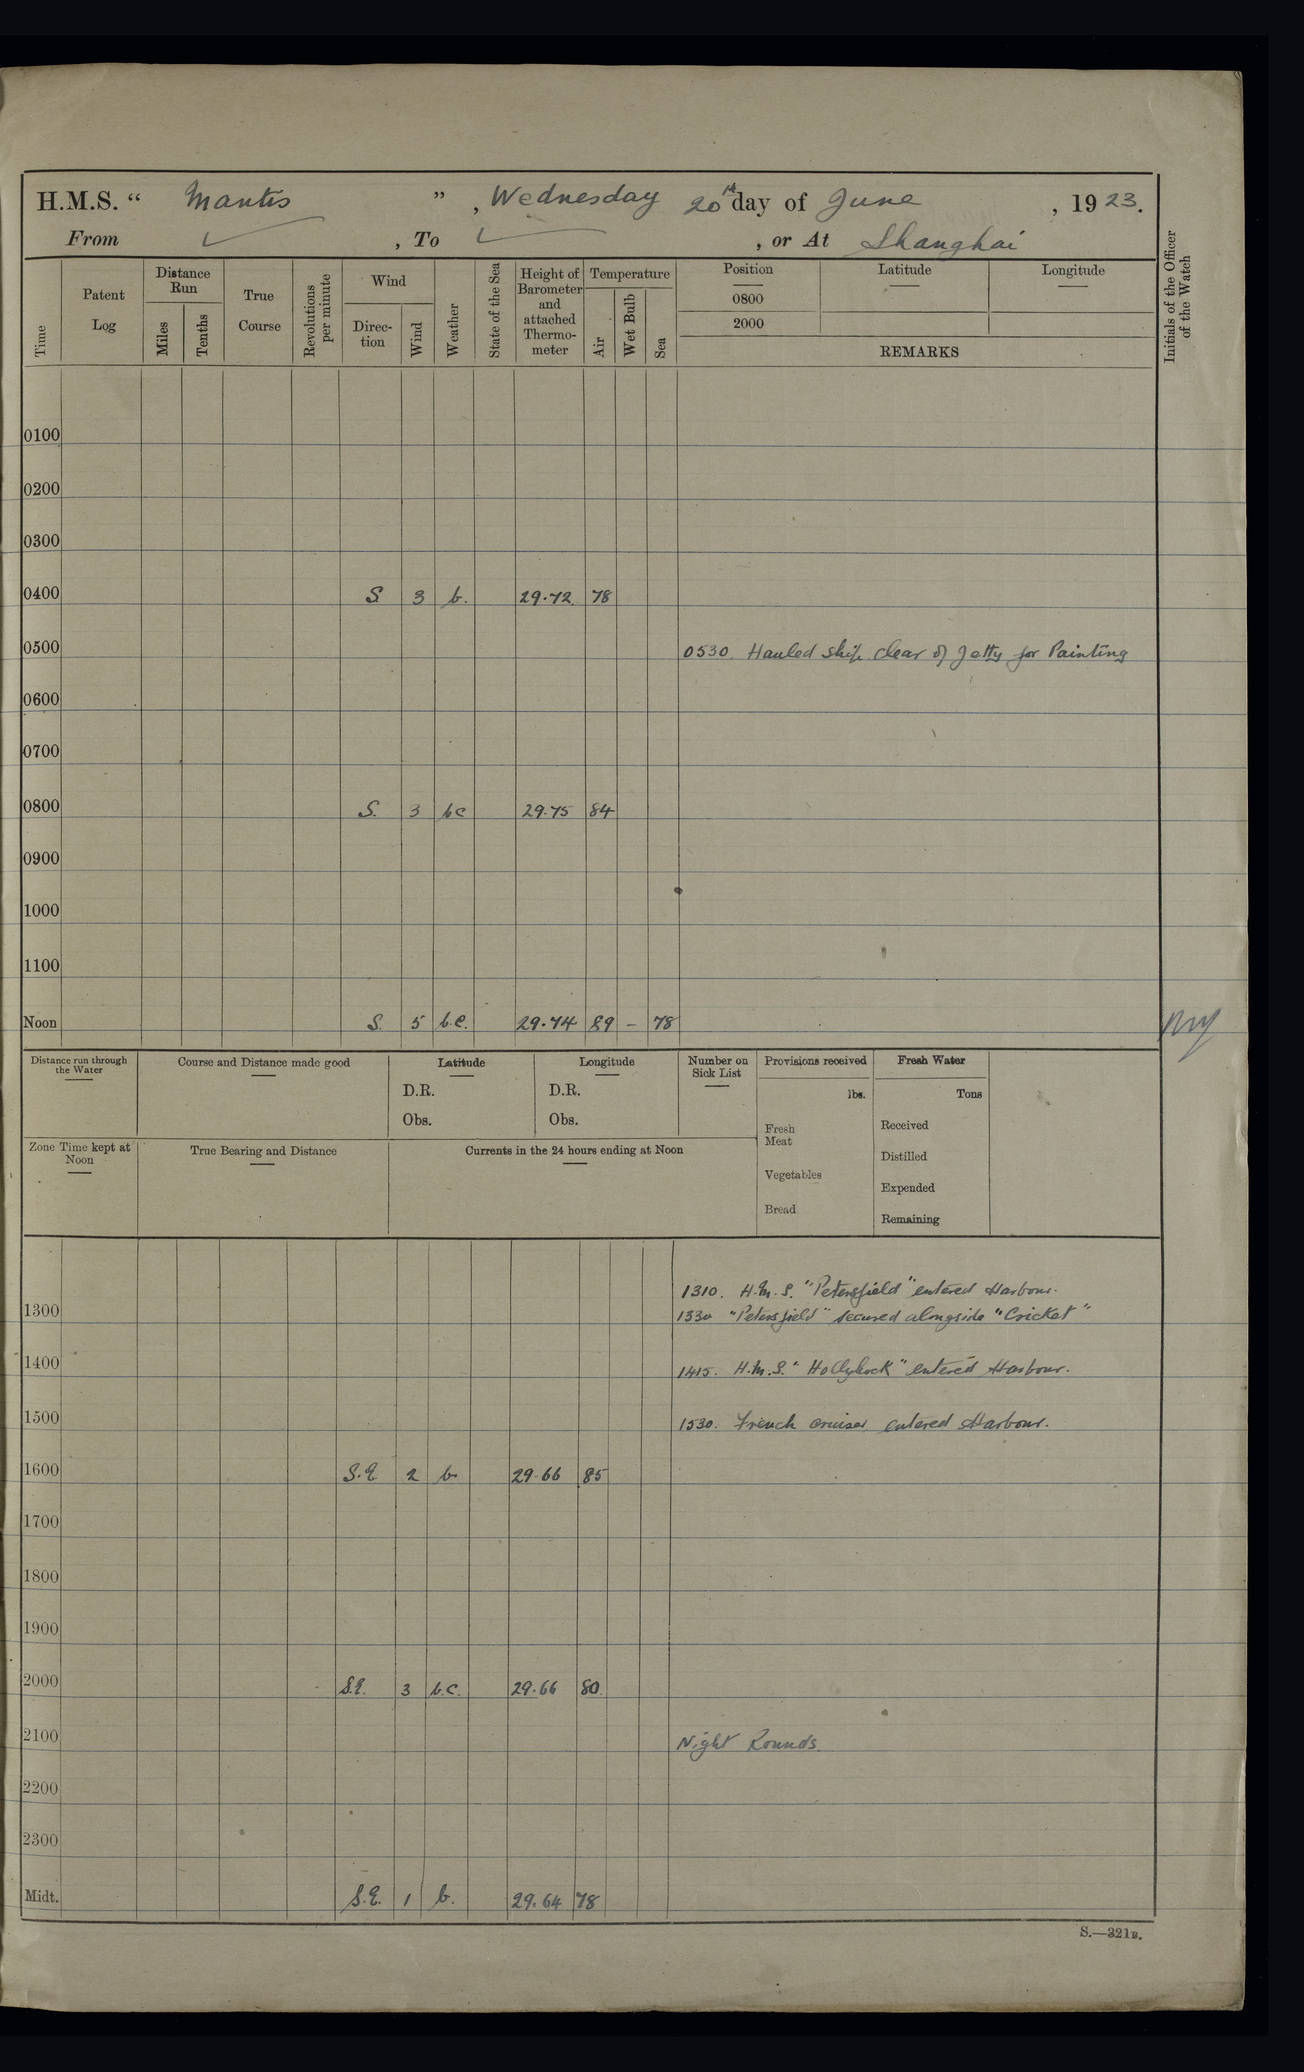 H.M.S. “ Mantis ” , Wednesday 20th day of June , 1923.
From ✓ , To ✓ , or At Shanghai
Time
Patent Log
Distance Run
Miles
Tenths
True Course
Revolutions per minute
Wind
Direc-tion
Wind
Weather
State of the Sea
Height of Barometer and attached Thermo-meter
Temperature
Air
Wet Bulb
Sea
Position
0800
2000
Latitude
Longitude
REMARKS
Initials of the Officer of the Watch
0100
0200
0300
0400 S. 3 b. 29.72 78
0500 0530 Hauled ship clear of Jetty for Painting
0600
0700
0800 S. 3 bc 29.75 84
0900
1000
1100
Noon S. 5 b.c. 29.74 89 – 78
Distance run through the Water
Course and Distance made good
Latitude
D.R.
Obs.
Longitude
D.R.
Obs.
Number on Sick List
Provisions received
lbs.
Fresh Meat
Vegetables
Bread
Fresh Water
Tons
Received
Distilled
Expended
Remaining
Zone Time kept at Noon
True Bearing and Distance
Currents in the 24 hours ending at Noon
1310. H.M.S. "Petersfield" entered Harbour.
1300 1330 "Petersfield" secured alongside "Cricket"
1400 1415. H.M.S. "Hollyhock" entered Harbour.
1500 1530. French cruiser entered Harbour.
1600 S.E. 2 b 29.66 85
1700
1800
1900
2000 S.E. 3 b.c. 29.66 80
2100 Night Rounds.
2200
2300
Midt. S.E. 1 b. 29.64 78
S.—321B.